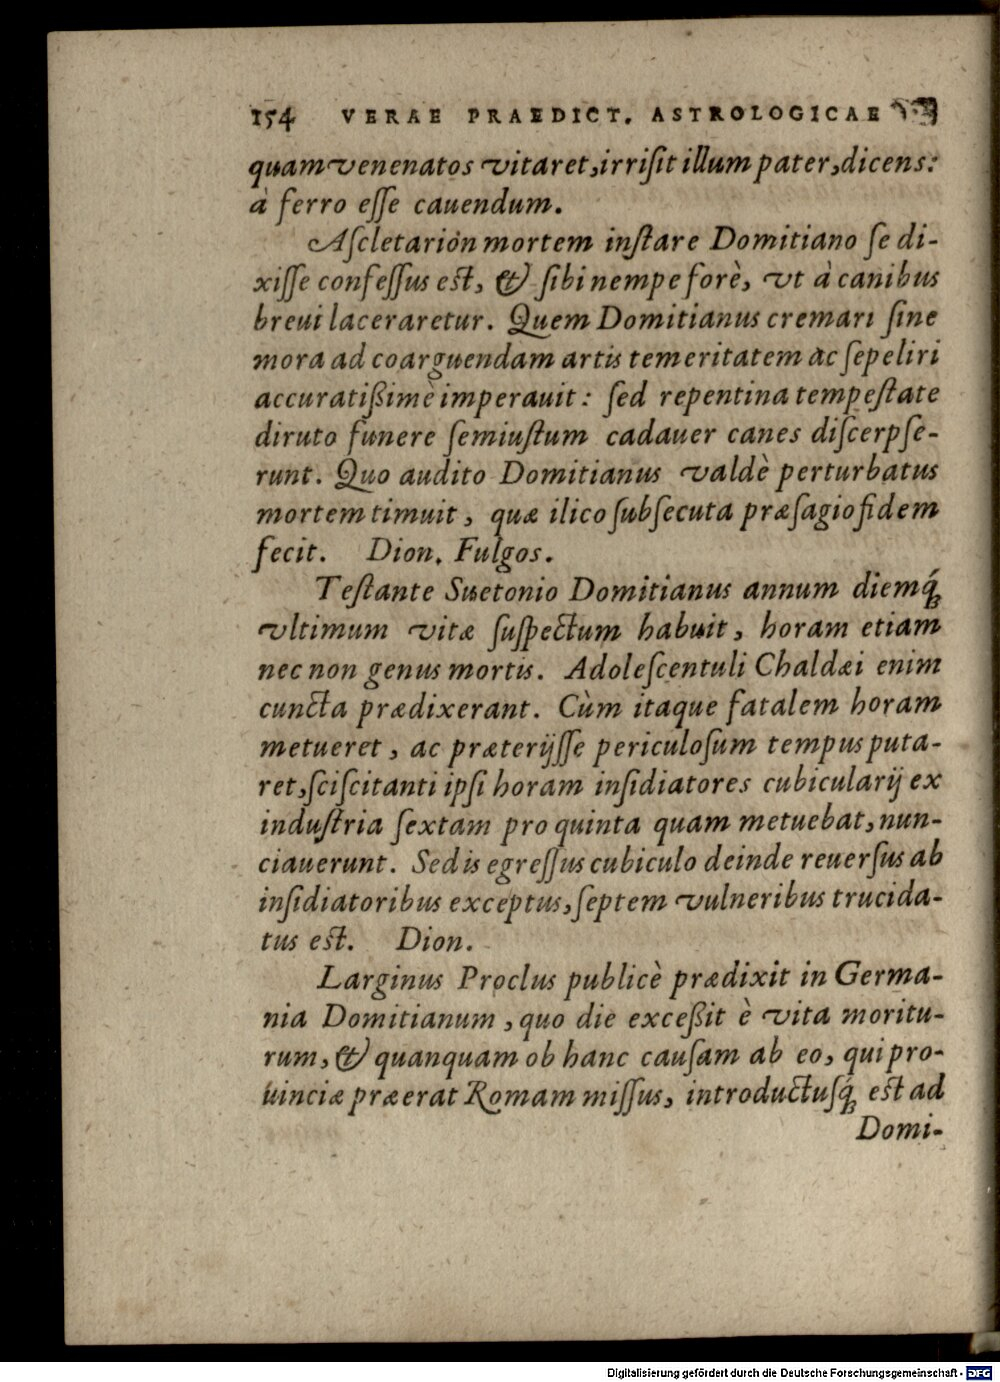 154 VERAE PRAEDICT. ASTROLOGICAE
quam venenatos vitaret, irrisit illum pater, dicens:
à ferro esse cauendum.
Ascletariòn mortem instare Domitiano se di-
xisse confessus est, & sibi nempe forè, vt à canibus
breui laceraretur. Quem Domitianus cremari sine
mora ad coarguendam artis temeritatem ac sepeliri
accuratißimè imperauit: sed repentina tempestate
diruto funere semiustum cadauer canes discerpse-
runt. Quo audito Domitianus valdè perturbatus
mortem timuit, quæ ilico subsecuta præsagio fidem
fecit. Dion. Fulgos.
Testante Suetonio Domitianus annum diemq́;
vltimum vitæ suspectum habuit, horam etiam
nec non genus mortis. Adolescentuli Chaldæi enim
cuncta prædixerant. Cùm itaque fatalem horam
metueret, ac præterijsse periculosum tempus puta-
ret, sciscitanti ipsi horam insidiatores cubicularij ex
industria sextam pro quinta quam metuebat, nun-
ciauerunt. Sed is egressus cubiculo deinde reuersus ab
insidiatoribus exceptus, septem vulneribus trucida-
tus est. Dion.
Larginus Proclus publicè prædixit in Germa-
nia Domitianum, quo die exceßit è vita moritu-
rum, & quanquam ob hanc causam ab eo, qui pro-
uinciæ præerat Romam missus, introductusq́; est ad
Domi-
Digitalisierung gefördert durch die Deutsche Forschungsgemeinschaft - DFG